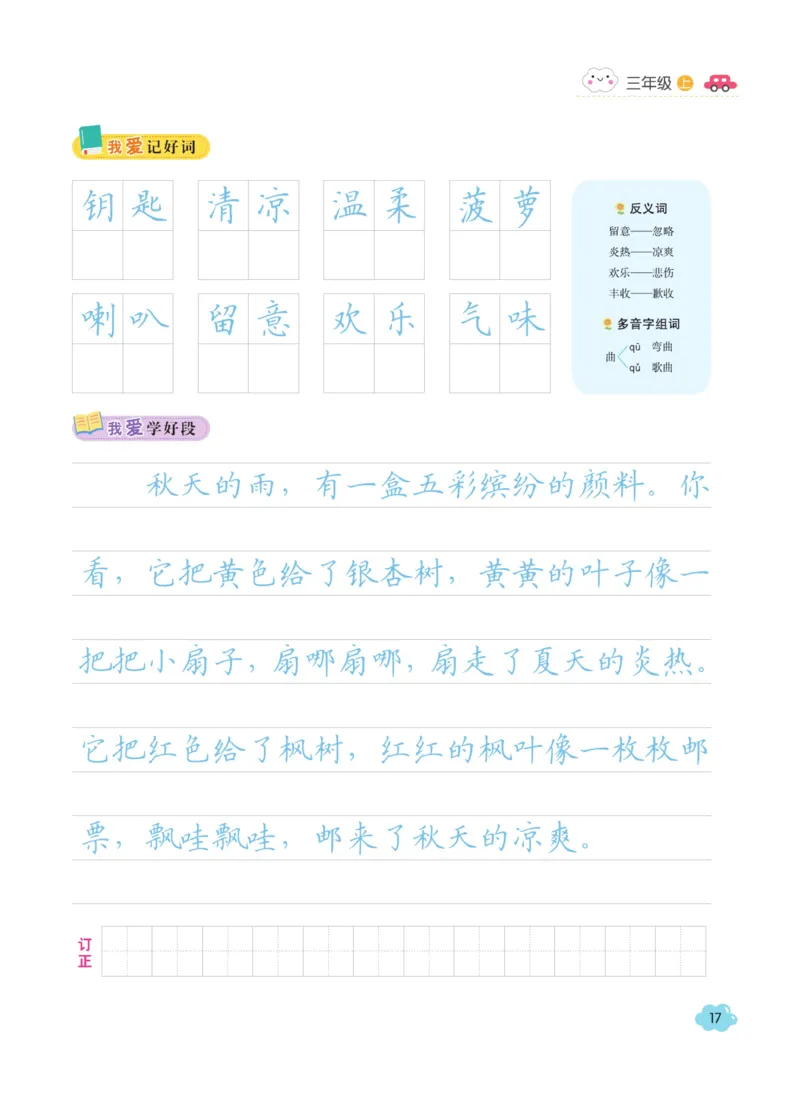 三年级 上
我爱记好词
钥匙 清凉 温柔 菠萝
喇叭 留意 欢乐 气味
反义词
留意——忽略
炎热——凉爽
欢乐——悲伤
丰收——歉收
多音字组词
曲
qū 弯曲
qǔ 歌曲
我爱学好段
秋天的雨，有一盒五彩缤纷的颜料。你
看，它把黄色给了银杏树，黄黄的叶子像一
把把小扇子，扇哪扇哪，扇走了夏天的炎热。
它把红色给了枫树，红红的枫叶像一枚枚邮
票，飘哇飘哇，邮来了秋天的凉爽。
订正
17